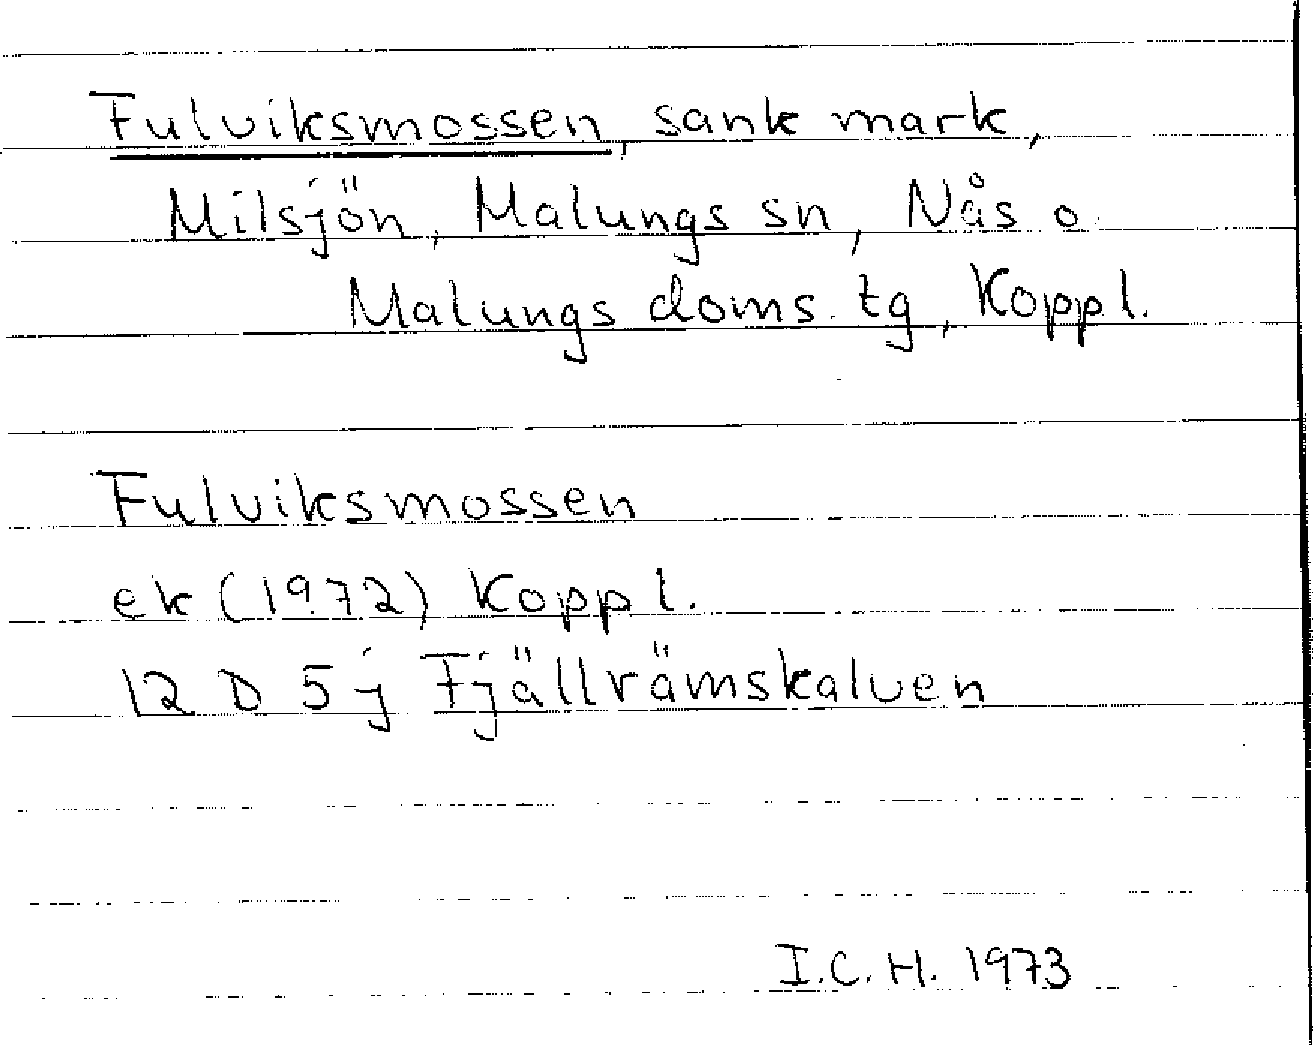 Fulviksmossen, sank mark,
Milsjön, Malungs sn, Nås o.
Malungs doms. tg, Koppl.
Fulviksmossen
ek (1972) Koppl.
12 D 5 j Fjällrämskalven
I.C.H. 1973